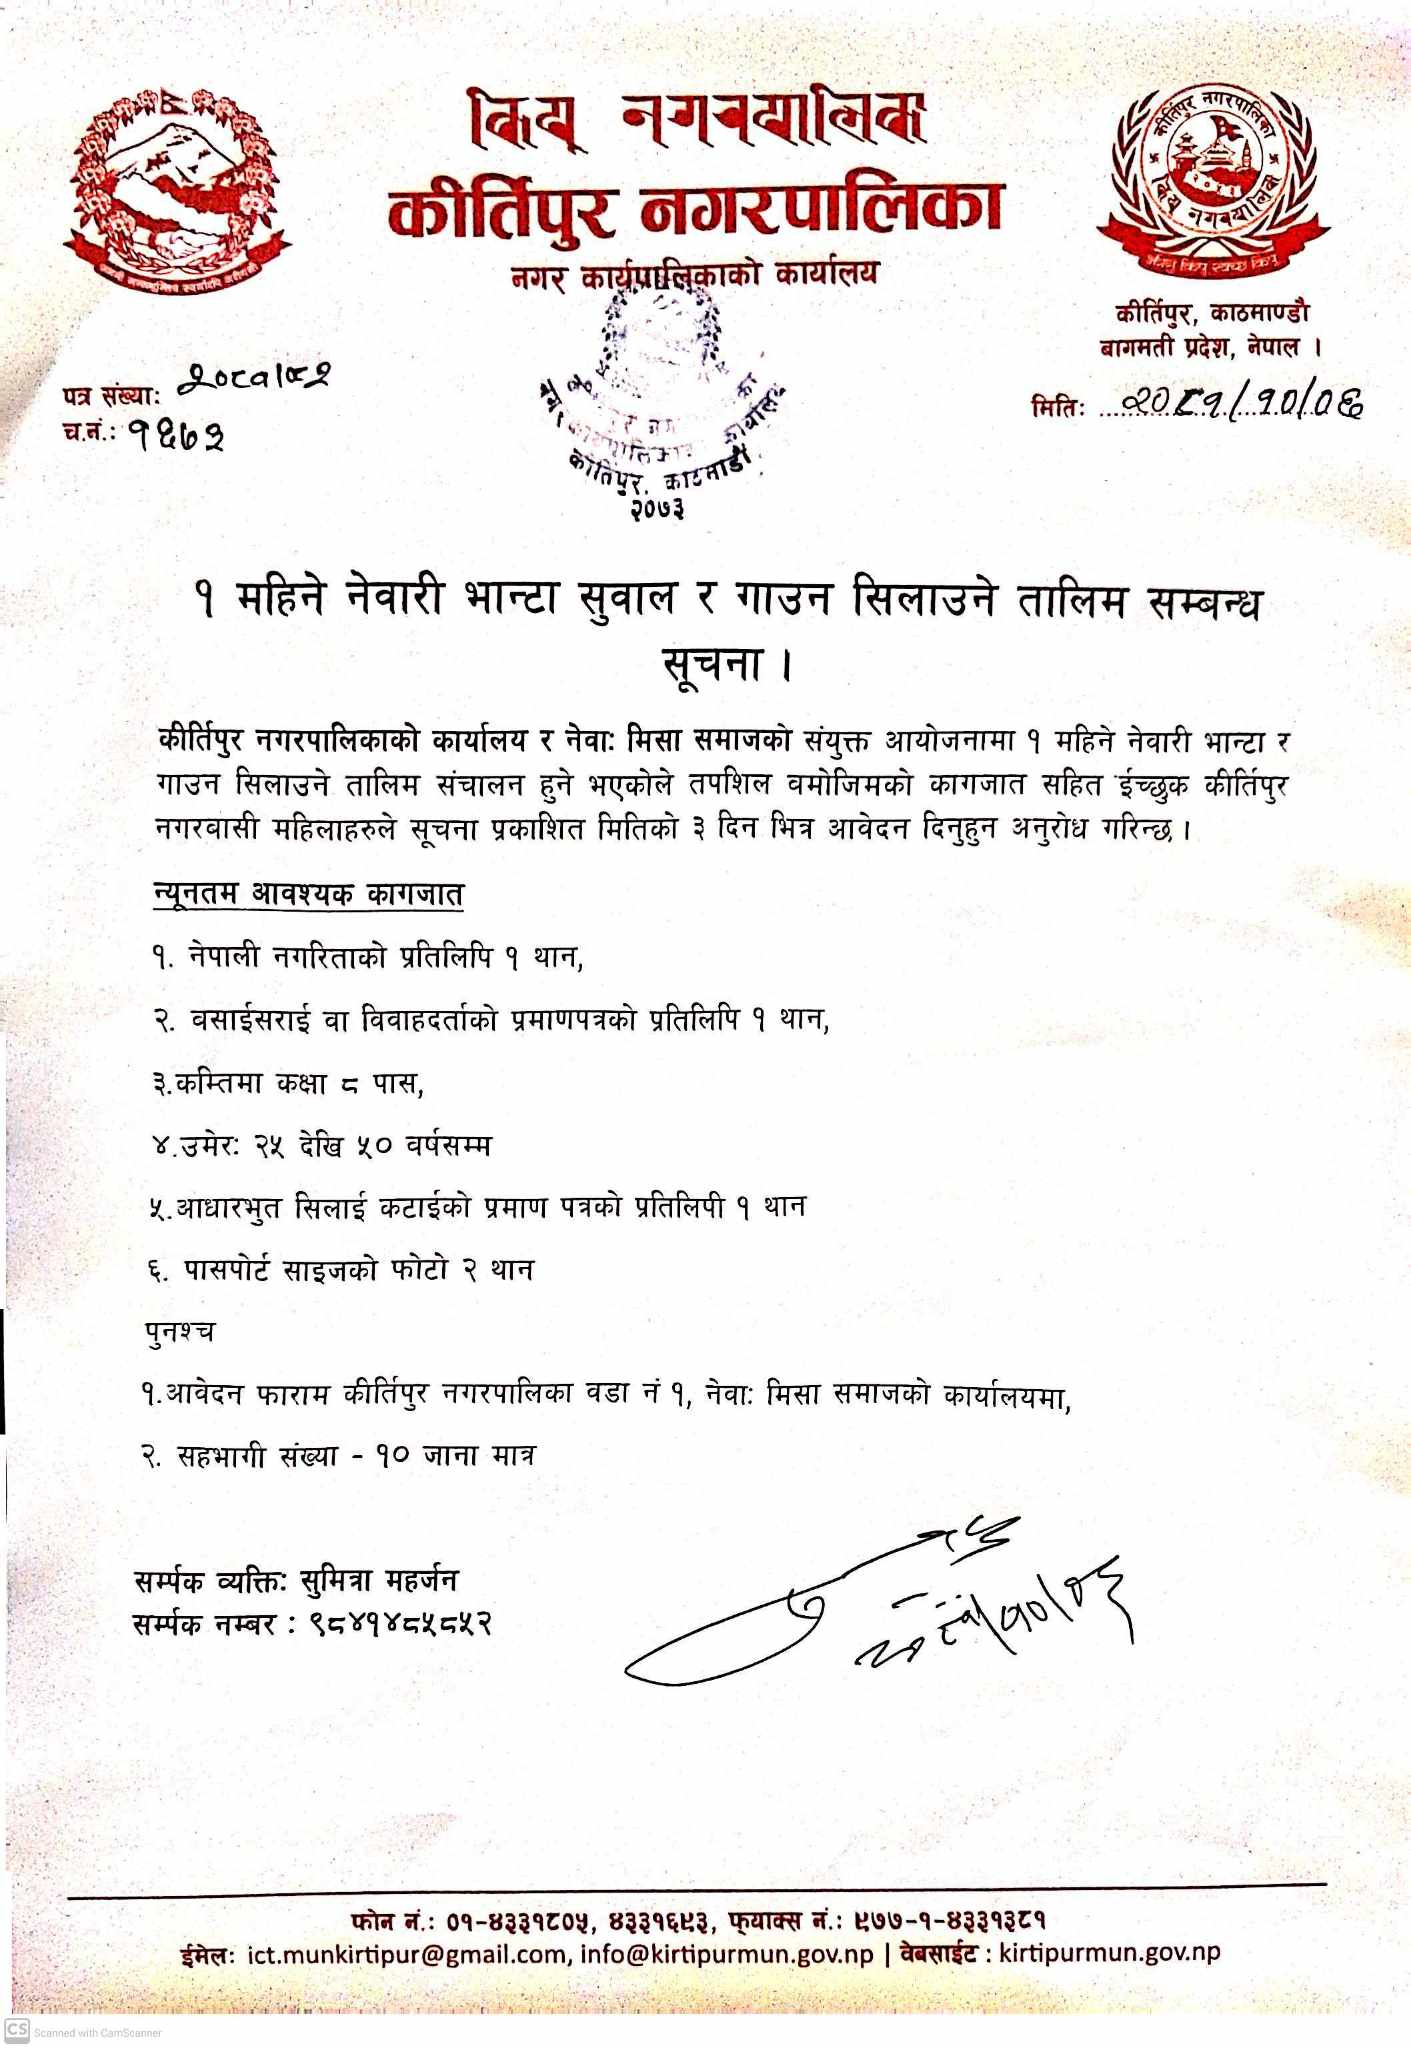 कीर्तिपुर नगरपालिका
नगर कार्यपालिकाको कार्यालय
कीर्तिपुर नगरपालिका
कीर्तिपुर, काठमाण्डौ
बागमती प्रदेश, नेपाल ।
पत्र संख्याः २०८१/८२
च.नं.: १६७२
मितिः २०८१/१०/०६
कीर्तिपुर, काठमाडौं
२०७३
१ महिने नेवारी भान्टा सुवाल र गाउन सिलाउने तालिम सम्बन्ध
सूचना ।
कीर्तिपुर नगरपालिकाको कार्यालय र नेवाः मिसा समाजको संयुक्त आयोजनामा १ महिने नेवारी भान्टा र
गाउन सिलाउने तालिम संचालन हुने भएकोले तपशिल वमोजिमको कागजात सहित ईच्छुक कीर्तिपुर
नगरवासी महिलाहरुले सूचना प्रकाशित मितिको ३ दिन भित्र आवेदन दिनुहुन अनुरोध गरिन्छ ।
न्यूनतम आवश्यक कागजात
१. नेपाली नगरिताको प्रतिलिपि १ थान,
२. वसाईसराई वा विवाहदर्ताको प्रमाणपत्रको प्रतिलिपि १ थान,
३.कम्तिमा कक्षा ८ पास,
४.उमेरः २५ देखि ५० वर्षसम्म
५.आधारभुत सिलाई कटाईको प्रमाण पत्रको प्रतिलिपी १ थान
६. पासपोर्ट साइजको फोटो २ थान
पुनश्च
१.आवेदन फाराम कीर्तिपुर नगरपालिका वडा नं १, नेवाः मिसा समाजको कार्यालयमा,
२. सहभागी संख्या - १० जाना मात्र
सर्म्पक व्यक्तिः सुमित्रा महर्जन
सर्म्पक नम्बर : ९८४१४८५८५२
फोन नं.: ०१-४३३१८०५, ४३३१६९३, फ्याक्स नं.: ९७७-१-४३३१३८१
ईमेलः ict.munkirtipur@gmail.com, info@kirtipurmun.gov.np | वेबसाईट : kirtipurmun.gov.np
CS Scanned with CamScanner